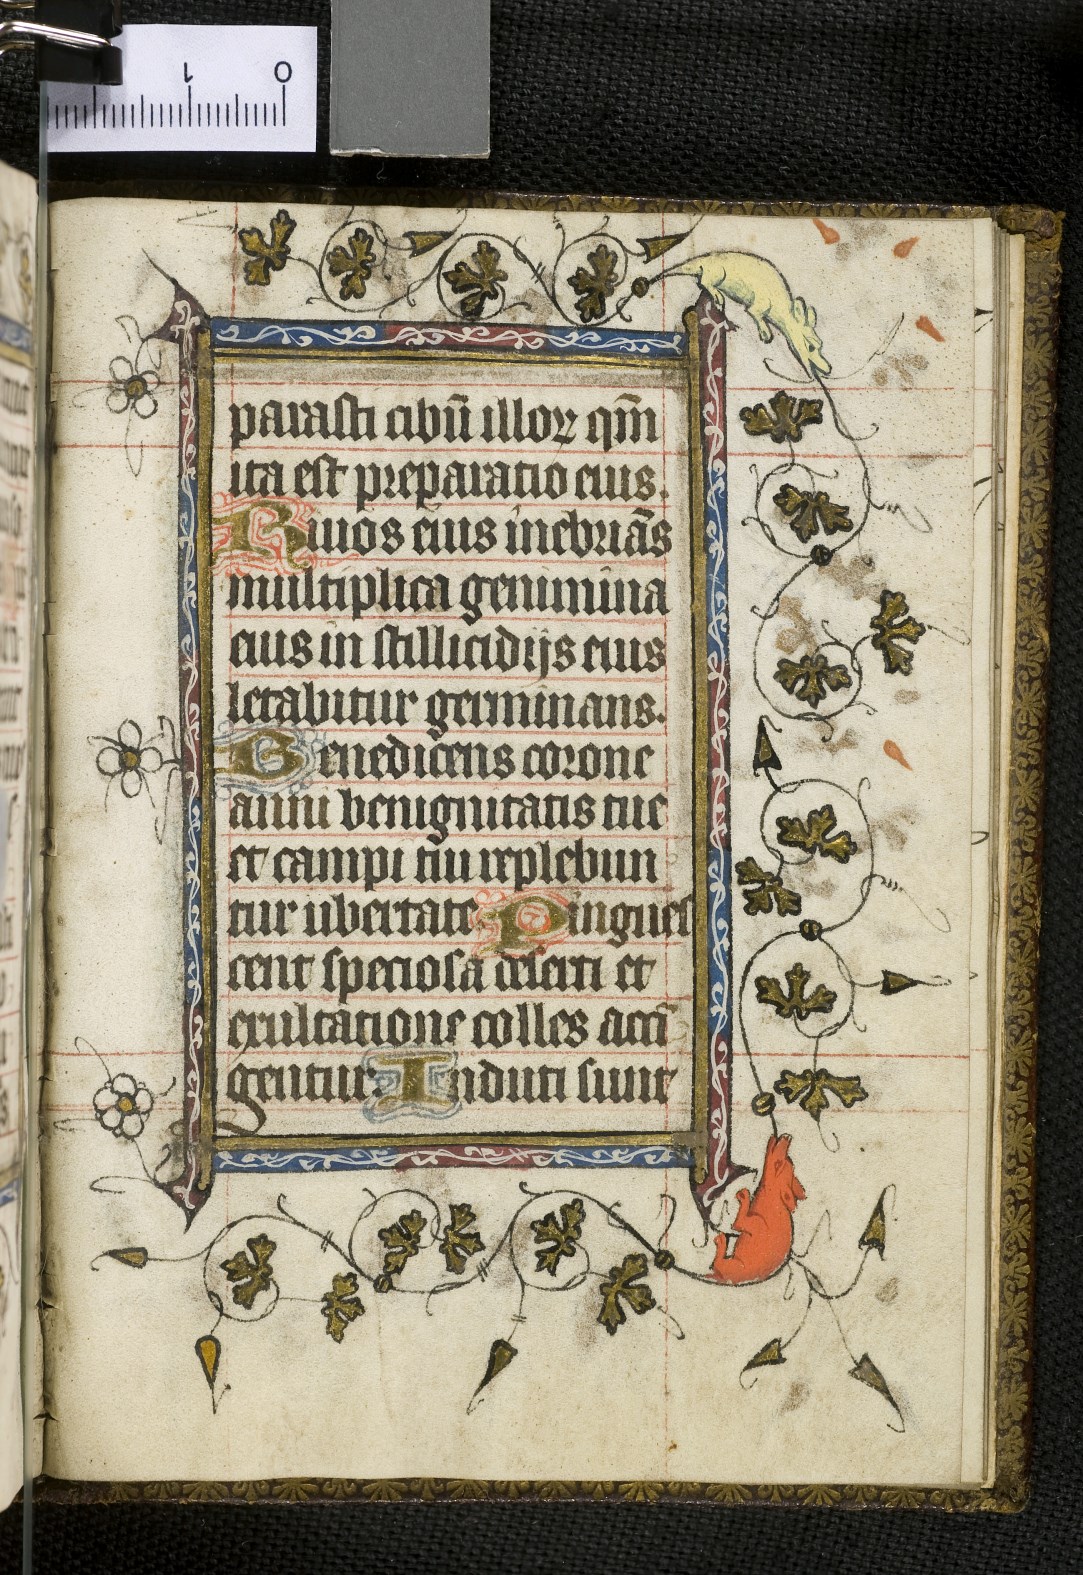 1 0
parasti cibū illoꝝ qm̄
ita est preparatio eius.
Riuos eius inebriās
multiplica genimina
eius in stillicidijs eius
letabitur germinans.
Benedicens corone
anni benignitatis tue
et campi tui replebun
tur ubertate Pingues
cent speciosa deserti et
exultatione colles accī
gentur. Induti sunt